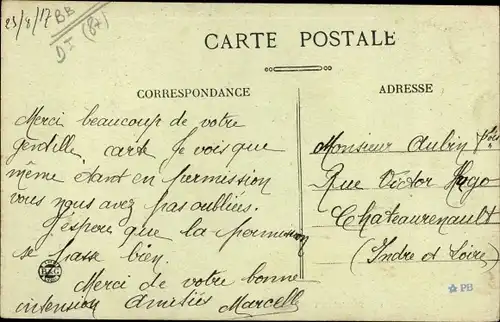 23/8/17 BB
(87)
CARTE POSTALE
CORRESPONDANCE
Merci beaucoup de votre
gentille carte Je vois que
même étant en permission
vous nous avez pas oubliées.
J'espère que la permission
se passe bien.
Merci de votre bonne
intension Amitiés Marcelle
ADRESSE
Monsieur Aubin fils
Rue Victor Hugo
Chateaurenault
(Indre et Loire)
PB